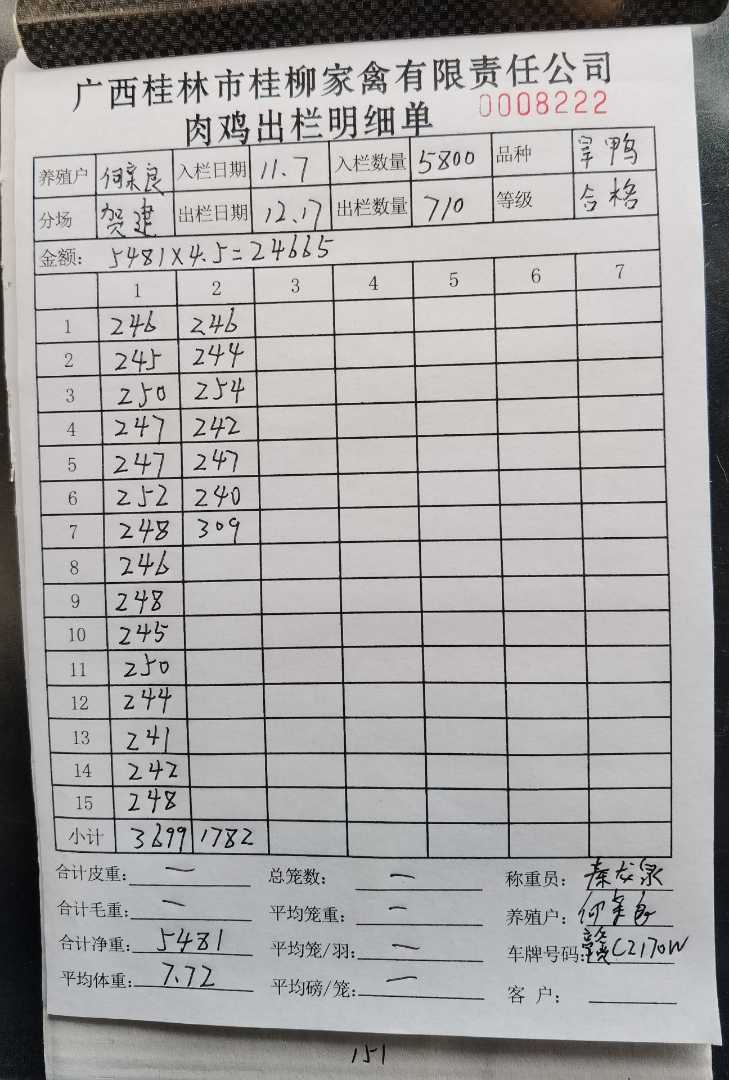 广西桂林市桂柳家禽有限责任公司
肉鸡出栏明细单 0008222
养殖户 何荣良 入栏日期 11.7 入栏数量 5800 品种 旱鸭
分场 贺建 出栏日期 12.17 出栏数量 710 等级 合格
金额: 5481×4.5=24665
1 2 3 4 5 6 7
1 246 246
2 245 244
3 250 254
4 247 242
5 247 247
6 252 240
7 248 309
8 246
9 248
10 245
11 250
12 244
13 241
14 242
15 248
小计 3699 1782
合计皮重: — 总笼数: — 称重员: 秦龙
合计毛重: — 平均笼重: — 养殖户: 何荣良
合计净重: 5481 平均笼/羽: — 车牌号码: 赣C2170W
平均体重: 7.72 平均磅/笼: — 客户:
151